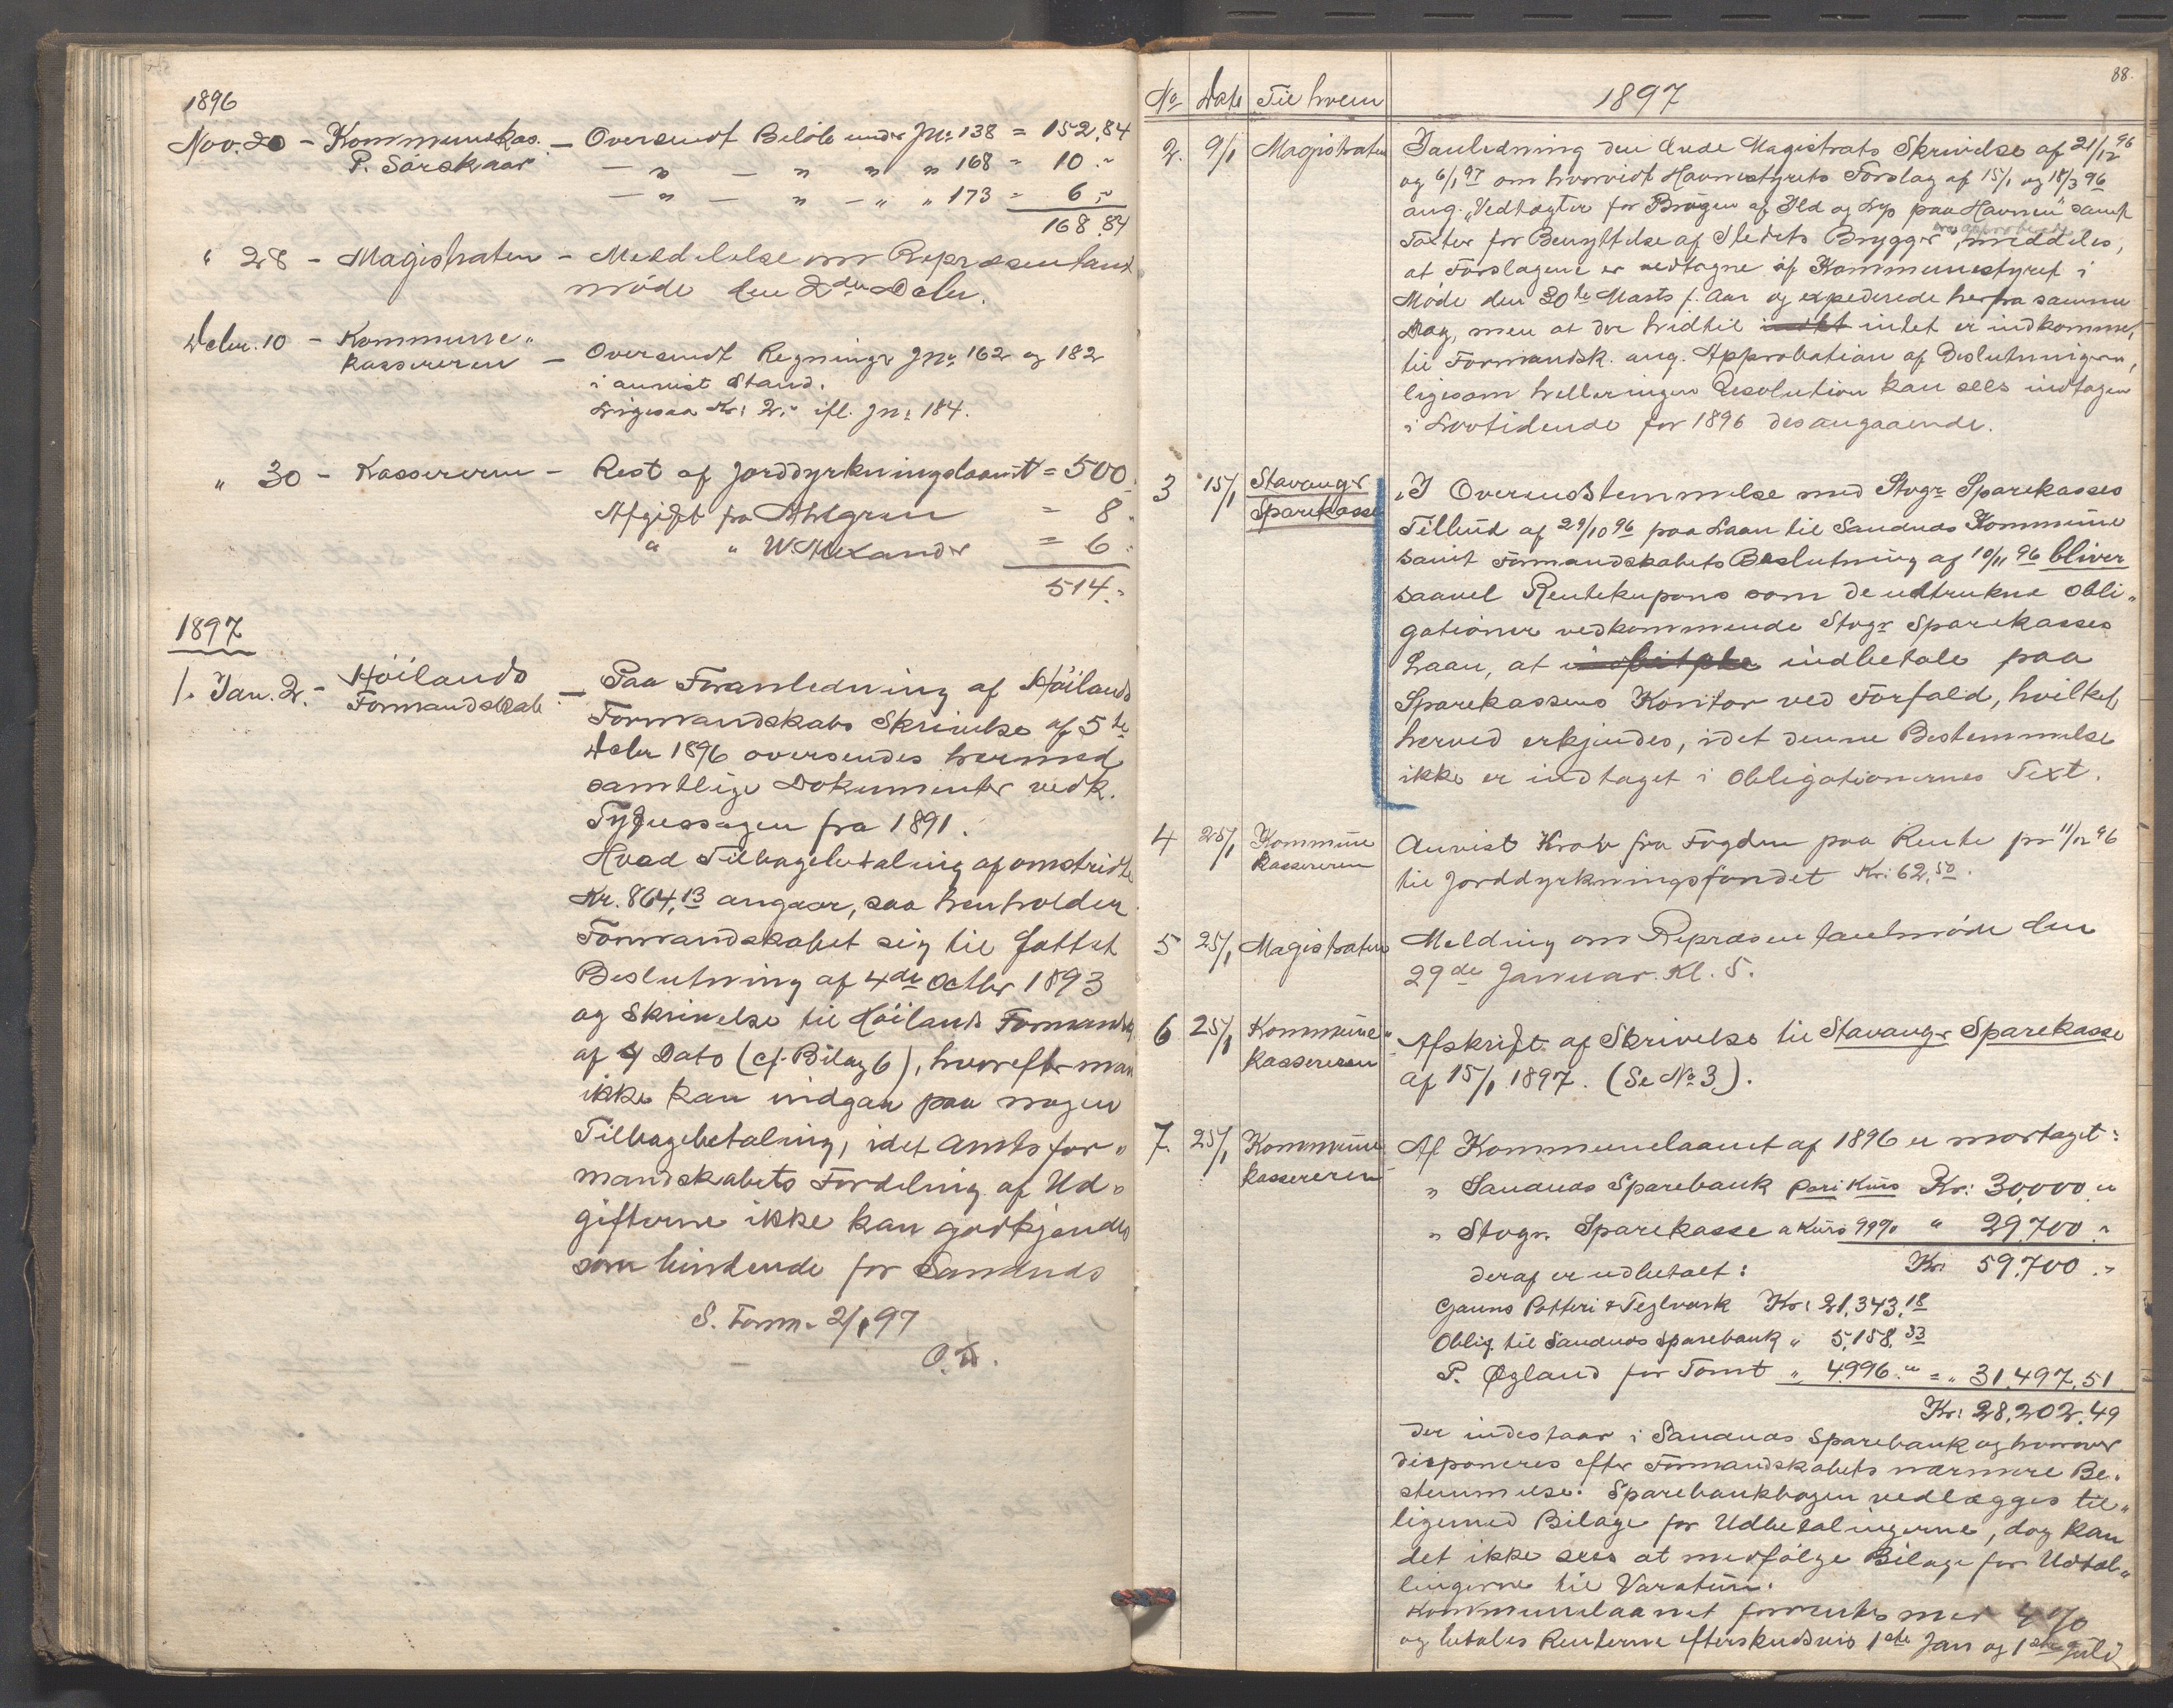 1896
Nov. 20 – Kommunekas. – Oversendt Beløb under Jn: 138 = 152,84
P. Sørskaar – " – " " " 168 = 10 "
– " – " – " " 173 = 6 "
168.84
" 28 – Magistraten – Meddelelse om Repræsentant
møde den 2den Decbr.
Decbr. 10 – Kommune-
kassereren – Oversendt Regninger Jn: 162 og 182
i anvist Stand.
Ligesaa Kr: 2." ifl. Jn: 184.
" 30 – Kassereren – Rest af Jorddyrkningslaanet = 500.
Afgift fra Ahlgren = 8 "
" " W. Alexander = 6 "
514."
1897
1. Jan. 2. – Höilands
Formandskab – Paa Foranledning af Höilands
Formandskabs Skrivelse af 5te
Decbr 1896 oversendes hermed
samtlige Dokumenter vedk.
Tyfussagen fra 1891.
Hvad Tilbagebetaling af omstridte
Kr. 864,13 angaar, saa henholder
Formandskabet sig til fattet
Beslutning af 4de Octbr 1893
og Skrivelse til Höilands Formandsk
af 4 Dato (cf. Bilag 6), hvorefter man
ikke kan indgaa paa nogen
Tilbagebetaling, idet Amtsfor-
mandskabets Fordeling af Ud-
gifterne ikke kan godkjendes
som bindende for Sandnes
S. Form. 2/1 97
88.
No Dato Til hvem 1897
2. 9/1 Magistraten I anledning den Ærede Magistrats Skrivelse af 21/12 96
og 6/1 97 om hvorvidt Havnestyrets Forslag af 15/1 og 18/3 96
ang. "Vedtægter for Brugen af Ild og Lys paa Havnen" samt
Taxter for Benyttelse af Stedets Brygger er approberede, meddeles,
at Forslagene er vedtagne af Kommunestyret i
Møde den 30te Marts f. Aar og expederede herfra samme
Dag, men at der hidtil intet er indkommet
til Formandsk. ang. Approbation af Beslutningen,
ligesom helleringen Resolution kan sees indtagen
i Lovtidende for 1896 desangaaende.
3 15/1 Stavanger
Sparekasse I Overensstemmelse med Stvgr Sparekasses
Tilbud af 29/10 96 paa Laan til Sandnes Kommune
samt Formandskabets Beslutning af 10/11 96 bliver
saavel Rentekupons som de udtrukne Obli-
gationer vedkommende Stvgr Sparekasses
Laan, at indbetale paa
Sparekassens Kontor ved Forfald, hvilket
herved erkjendes, idet denne Bestemmelse
ikke er indtaget i Obligationernes Text.
4 25/1 Kommune
kassereren Anvist Krav fra Fogden paa Rente pr 11/12 96
til Jorddyrkningsfondet Kr: 62,50.
5 25/1 Magistraten Melding om Repræsentantmøde den
29de Januar. Kl. 5.
6 25/1 Kommune-
kassereren Afskrift af Skrivelse til Stavanger Sparekasse
af 15/1 1897. (Se No 3).
7. 25/1 Kommune
kassereren Af Kommunelaanet af 1896 er mottaget:
" Sandnes Sparebank Pari Kurs Kr: 30,000."
" Stvgr. Sparekasse a Kurs 99% " 29.700."
Kr: 59.700."
deraf er udbetalt:
Ganns Potteri & Teglværk Kr: 21,343.18
Oblig. til Sandnes Sparebank " 5,158.33
P. Øgland for Tomt " 4996." = " 31.497,51
Kr: 28,202.49
der indestaar i Sandnes Sparebank og hvorover
disponeres efter Formandskabets nærmere Be-
stemmelse. Sparebankbogen vedlægges til-
ligemed Bilage for Udbetalingerne, dog kan
det ikke sees at medfølge Bilage for Udtal-
lingerne til
Kommunelaanet forrentes med 4%
og betales Renterne efterskudsvis 1ste Jan og 1ste Juli